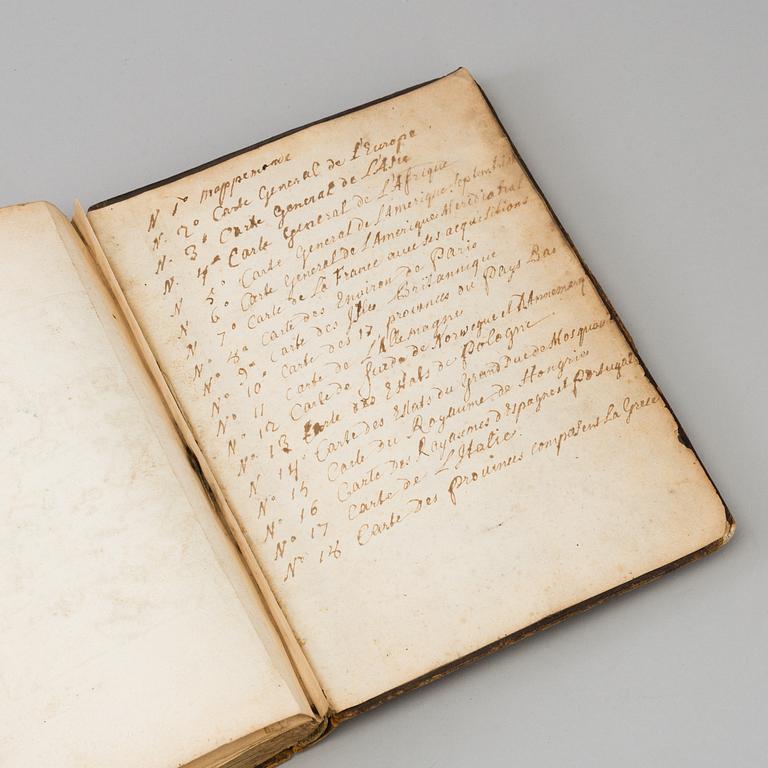 N 1º mappemonde
N. 2º Carte General de L'Europe
N. 3º Carte General de L'Asie
N. 4º Carte General de L'Afrique
N 5º Carte General de L'Amerique Septentrion
N 6º Carte General de L'Amerique Meridional
N. 7º Carte de La France avec ses acquisitions
Nº 8º Carte des Environ de Paris
Nº 9º Carte des Isles Britannique
Nº 10º Carte des 17 provinces du Pays Bas
Nº 11 Carte de L'Allemagne
Nº 12 Carte de Suede de Norwegue et d'Annemarq
Nº 13 Carte des Estats de Pologne
N 14º Carte des Estats du Grand Duc de Mosquov
Nº 15 Carte du Royaume de Hongrie
Nº 16 Carte des Royaumes d'Espagne et Portugal
Nº 17 Carte de L'Italie.
Nº 18 Carte des Provinces composens La Grece